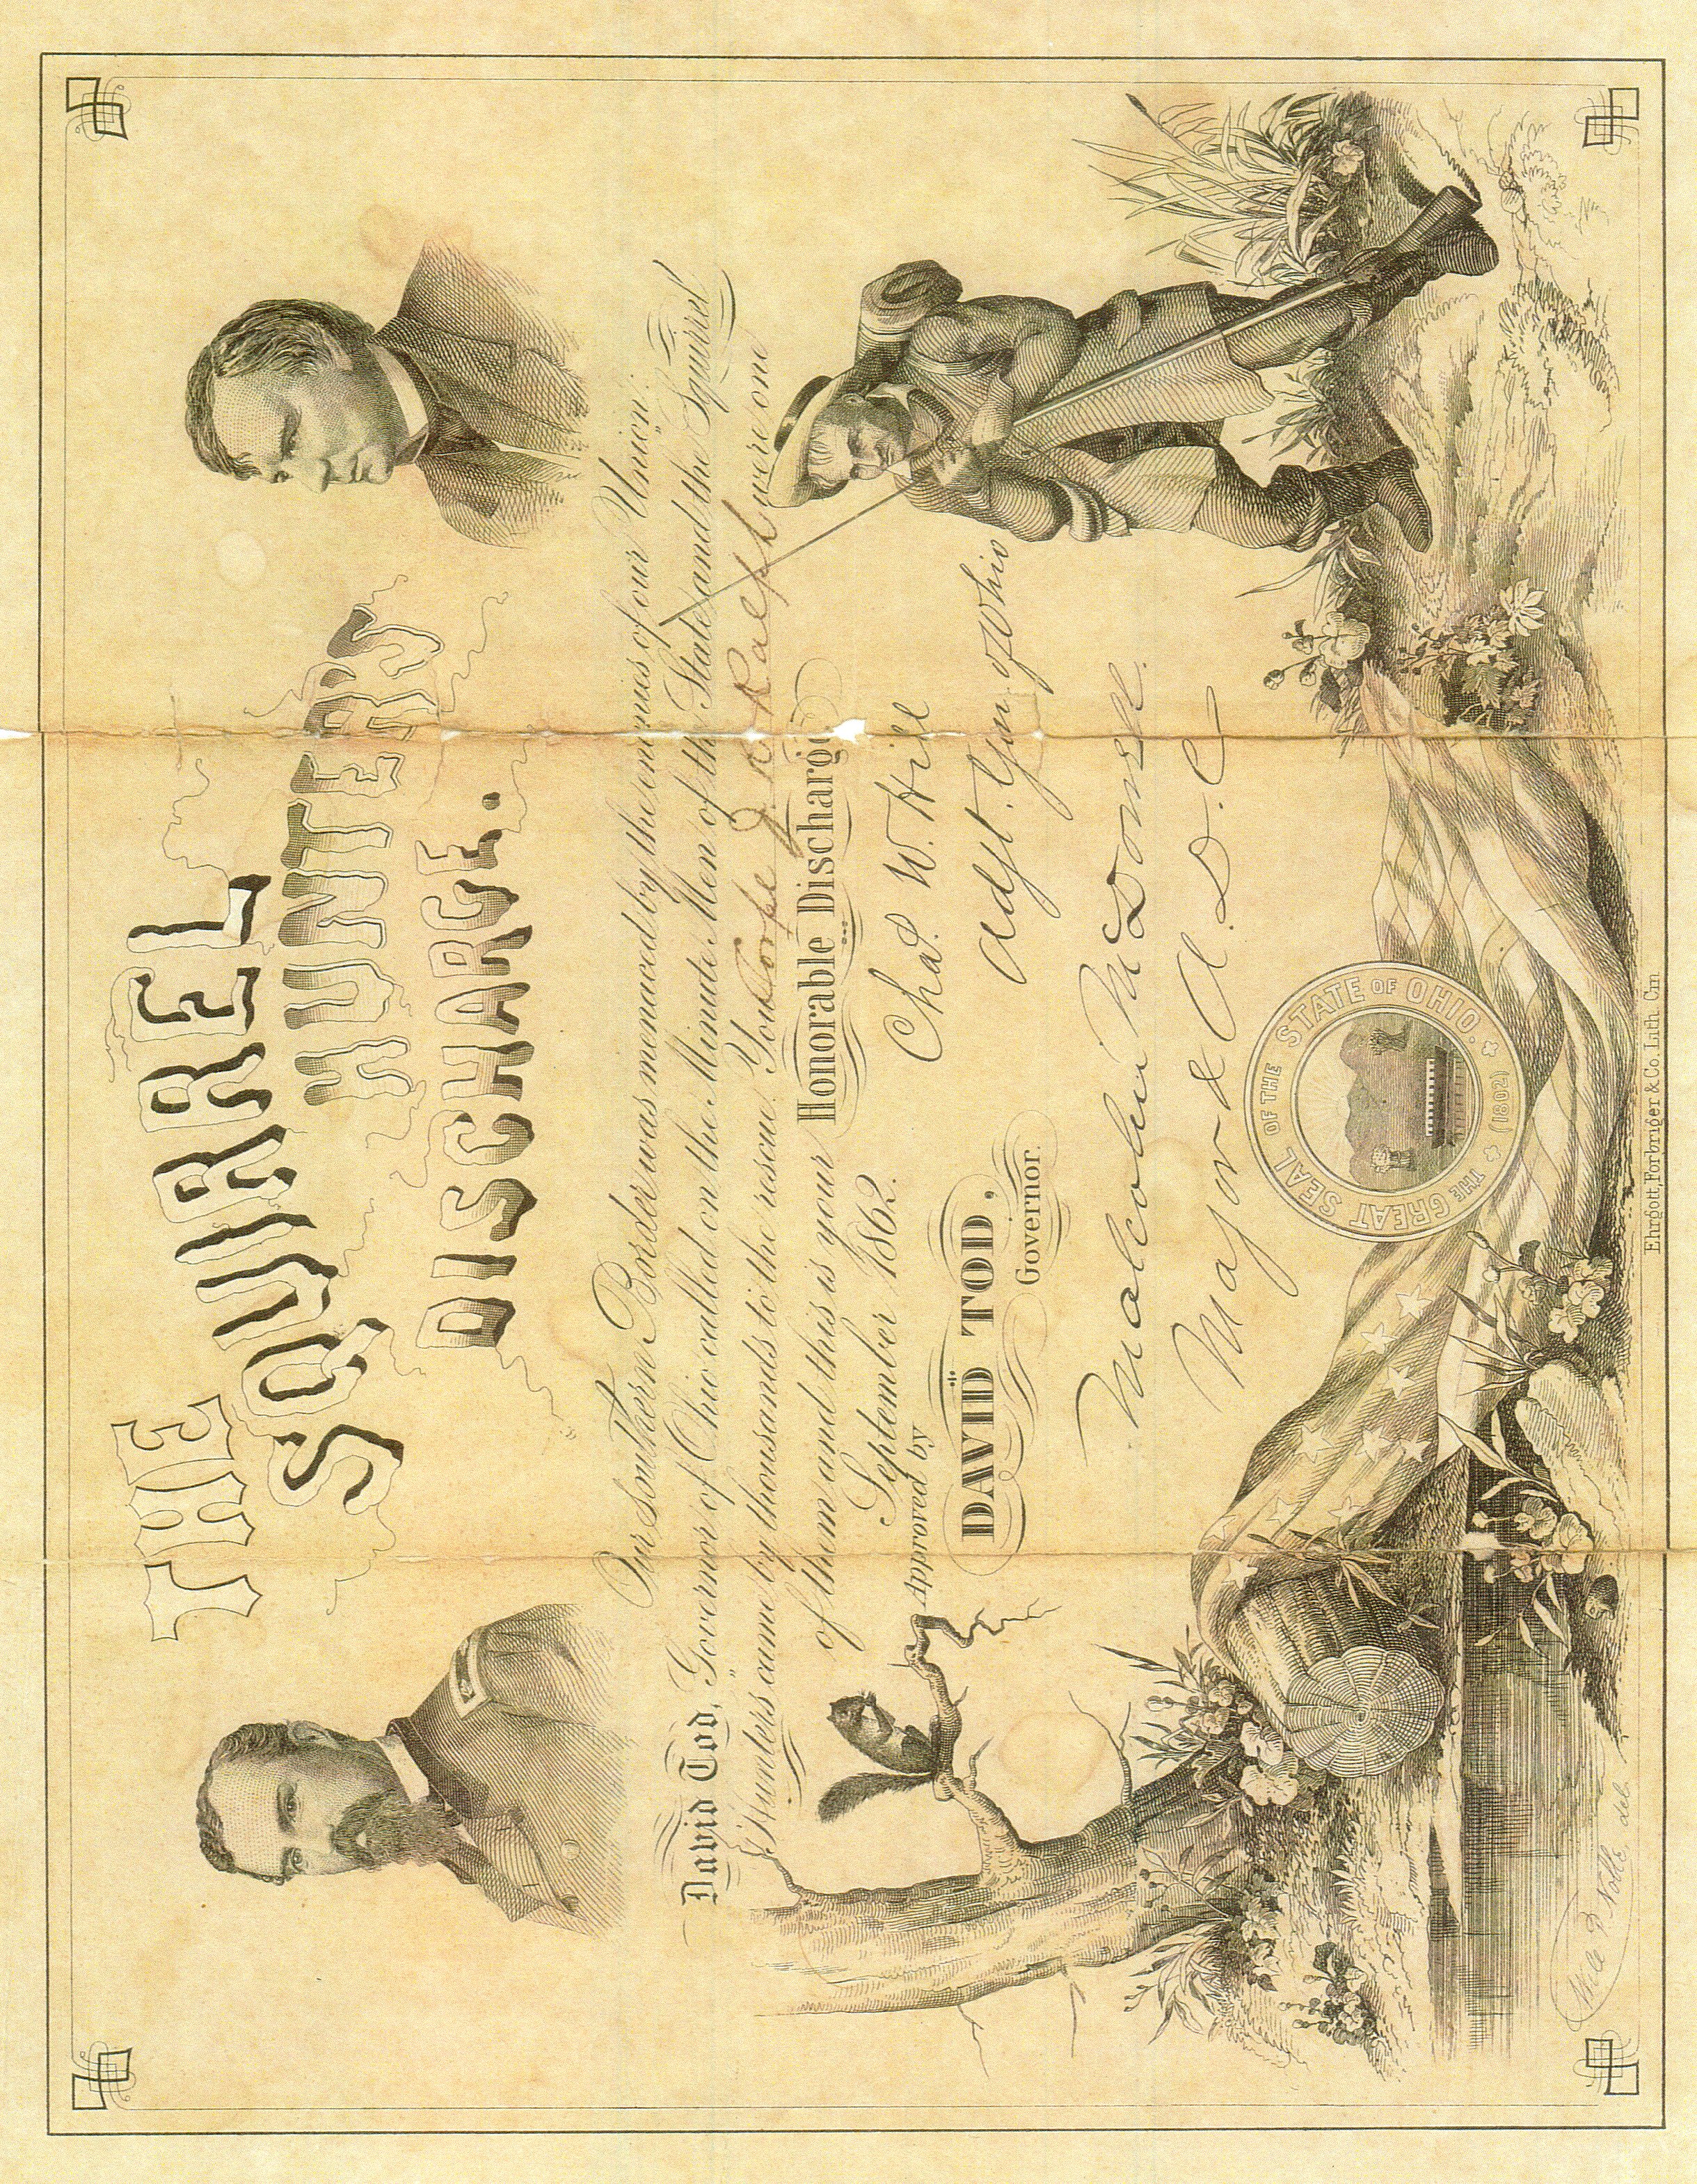 THE
SQUIRREL
HUNTER'S
DISCHARGE.
Our Southern Border was menaced by the enemies of our Union.
David Tod, Governor of Ohio called on the Minute Men of the State and the "Squirrel
Hunters" came by thousands to the rescue. You J. R. were one
of them and this is your Honorable Discharge
September 1862.
Chas. W. Hill
Adjt. Gen. of Ohio
Approved by
DAVID TOD,
Governor.
Malcolm McDowell.
Major & A. D. C
THE GREAT SEAL OF THE STATE OF OHIO.
(1802)
Ehrgott, Forbriger & Co. Lith. Cin
P. Noble, del.